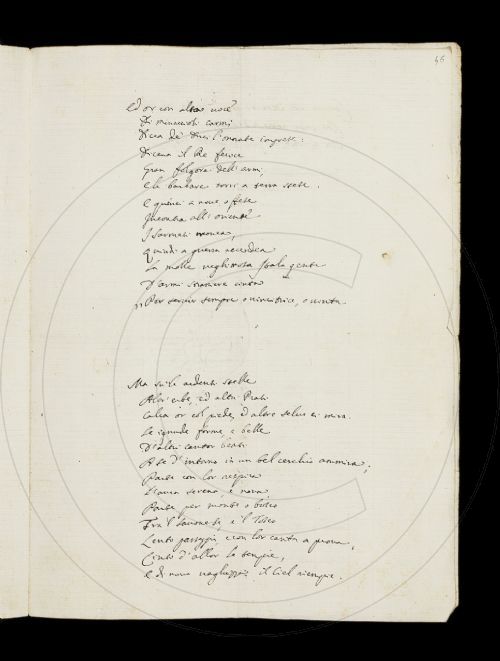 46
Ed or con altra voce
Di minacciosi carmi
Dicea de' Duci l'onorate imprese:
Dicena il Re feroce
Gran folgore dell'armi,
e le barbare torri a terra stese.
e quinci a nove offese
Incontra all'oriente
I Sarmati movea,
quindi a guerra accendea
La molle neghittosa Itala gente
D'armi straniere cinta
Per servir sempre o vincitrice, o vinta
Ma su le ardenti stelle
Altri cibi, ed altri Prati
Calca or col piede, ed altre selve ei mira
Le ignude forme, e belle
D'altri cantor beati
A se d'intorno in un bel cerchio ammira;
Parte con lor respira
L'aura serena, e nova
Parte per monte o bosco
Fra 'l Savonese, e 'l Tosco
Lento passeggia, e con lor canta a prova,
Cinto d'allor le tempie,
e di nova vaghezza il Ciel riempie.